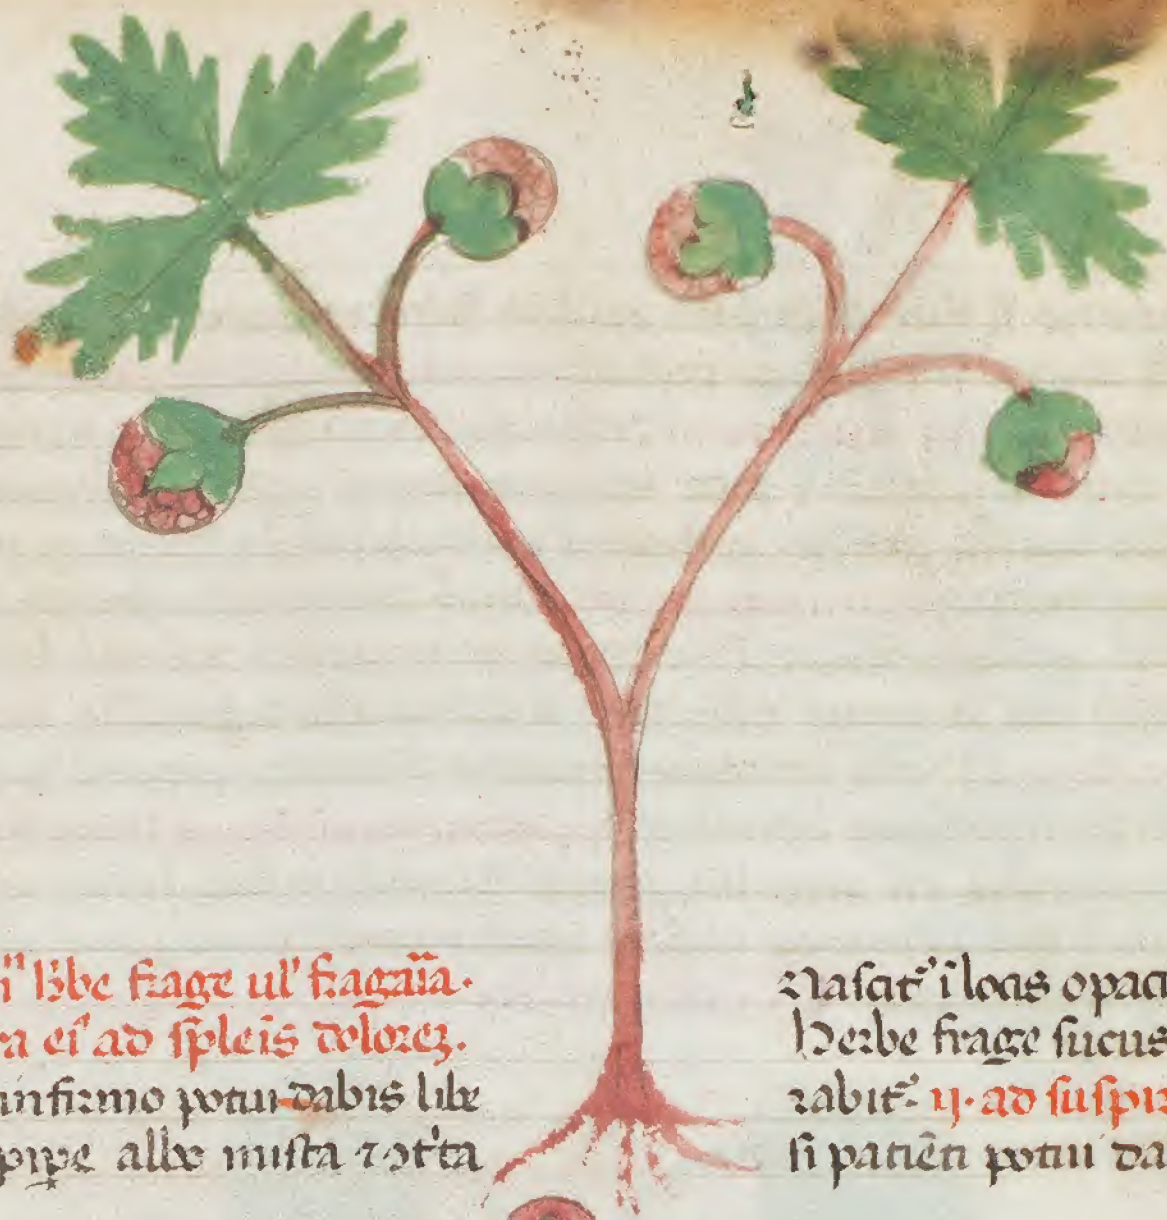 h̓be frage ul' fragaīa.
ei' ad spleīs dolorez.
infirmo potui dabis libe
pipe albo mista ⁊ t̓ta
Nascit' i locis opaci
Herbe frage sucus
rabit' ij. ad suspir
si patiēti potui da